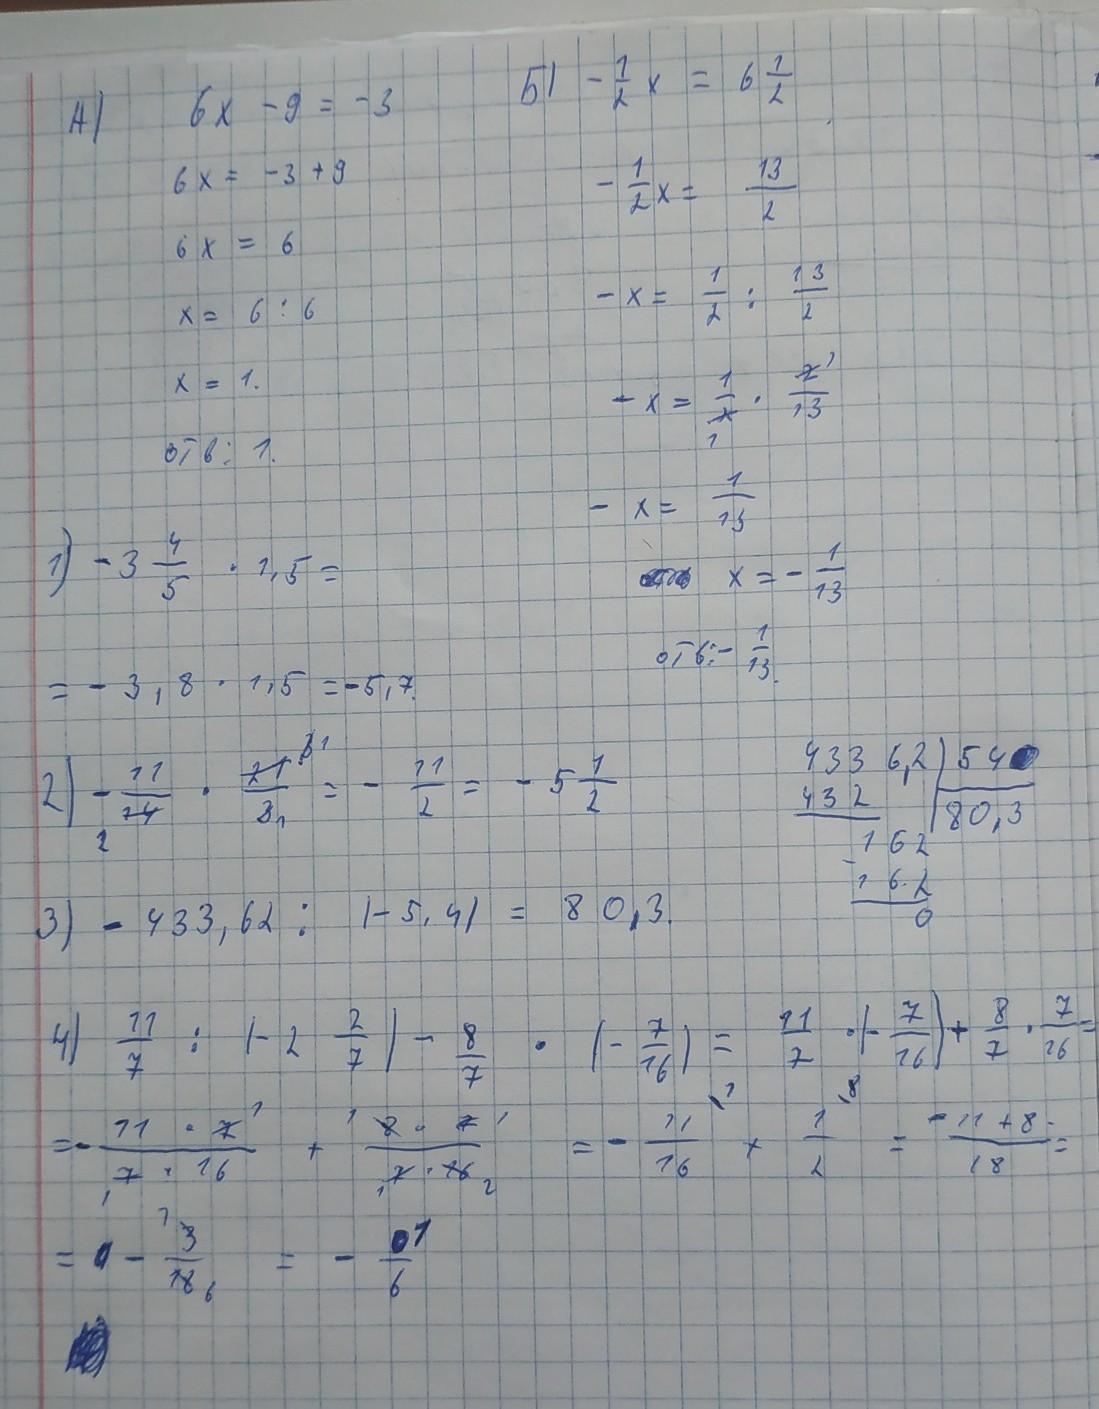 А) 6x - 9 = -3
6x = -3 + 9
6x = 6
x = 6 : 6
x = 1.
отв: 1.
Б) - 1/2 x = 6 1/2
- 1/2 x = 13/2
- x = 1/2 : 13/2
- x = 1/2 · 2/13
- x = 1/13
x = - 1/13
отв: - 1/13.
1) - 3 4/5 · 1,5 =
= - 3,8 · 1,5 = -5,7.
2) - 11/14 · 21/3 = - 11/2 = - 5 1/2
4336,2 | 54
432 | 80,3
162
- 162
0
3) - 433,62 : (-5,4) = 80,3.
4) 11/7 : (-2 2/7) - 8/7 · (- 7/16) = 11/7 · (- 7/16) + 8/7 · 7/16 =
= - 11 · 7 / 7 · 16 + 8 · 7 / 7 · 16 = - 11/16 + 1/2 = -11 + 8 / 18 =
= - 3/18 = - 1/6